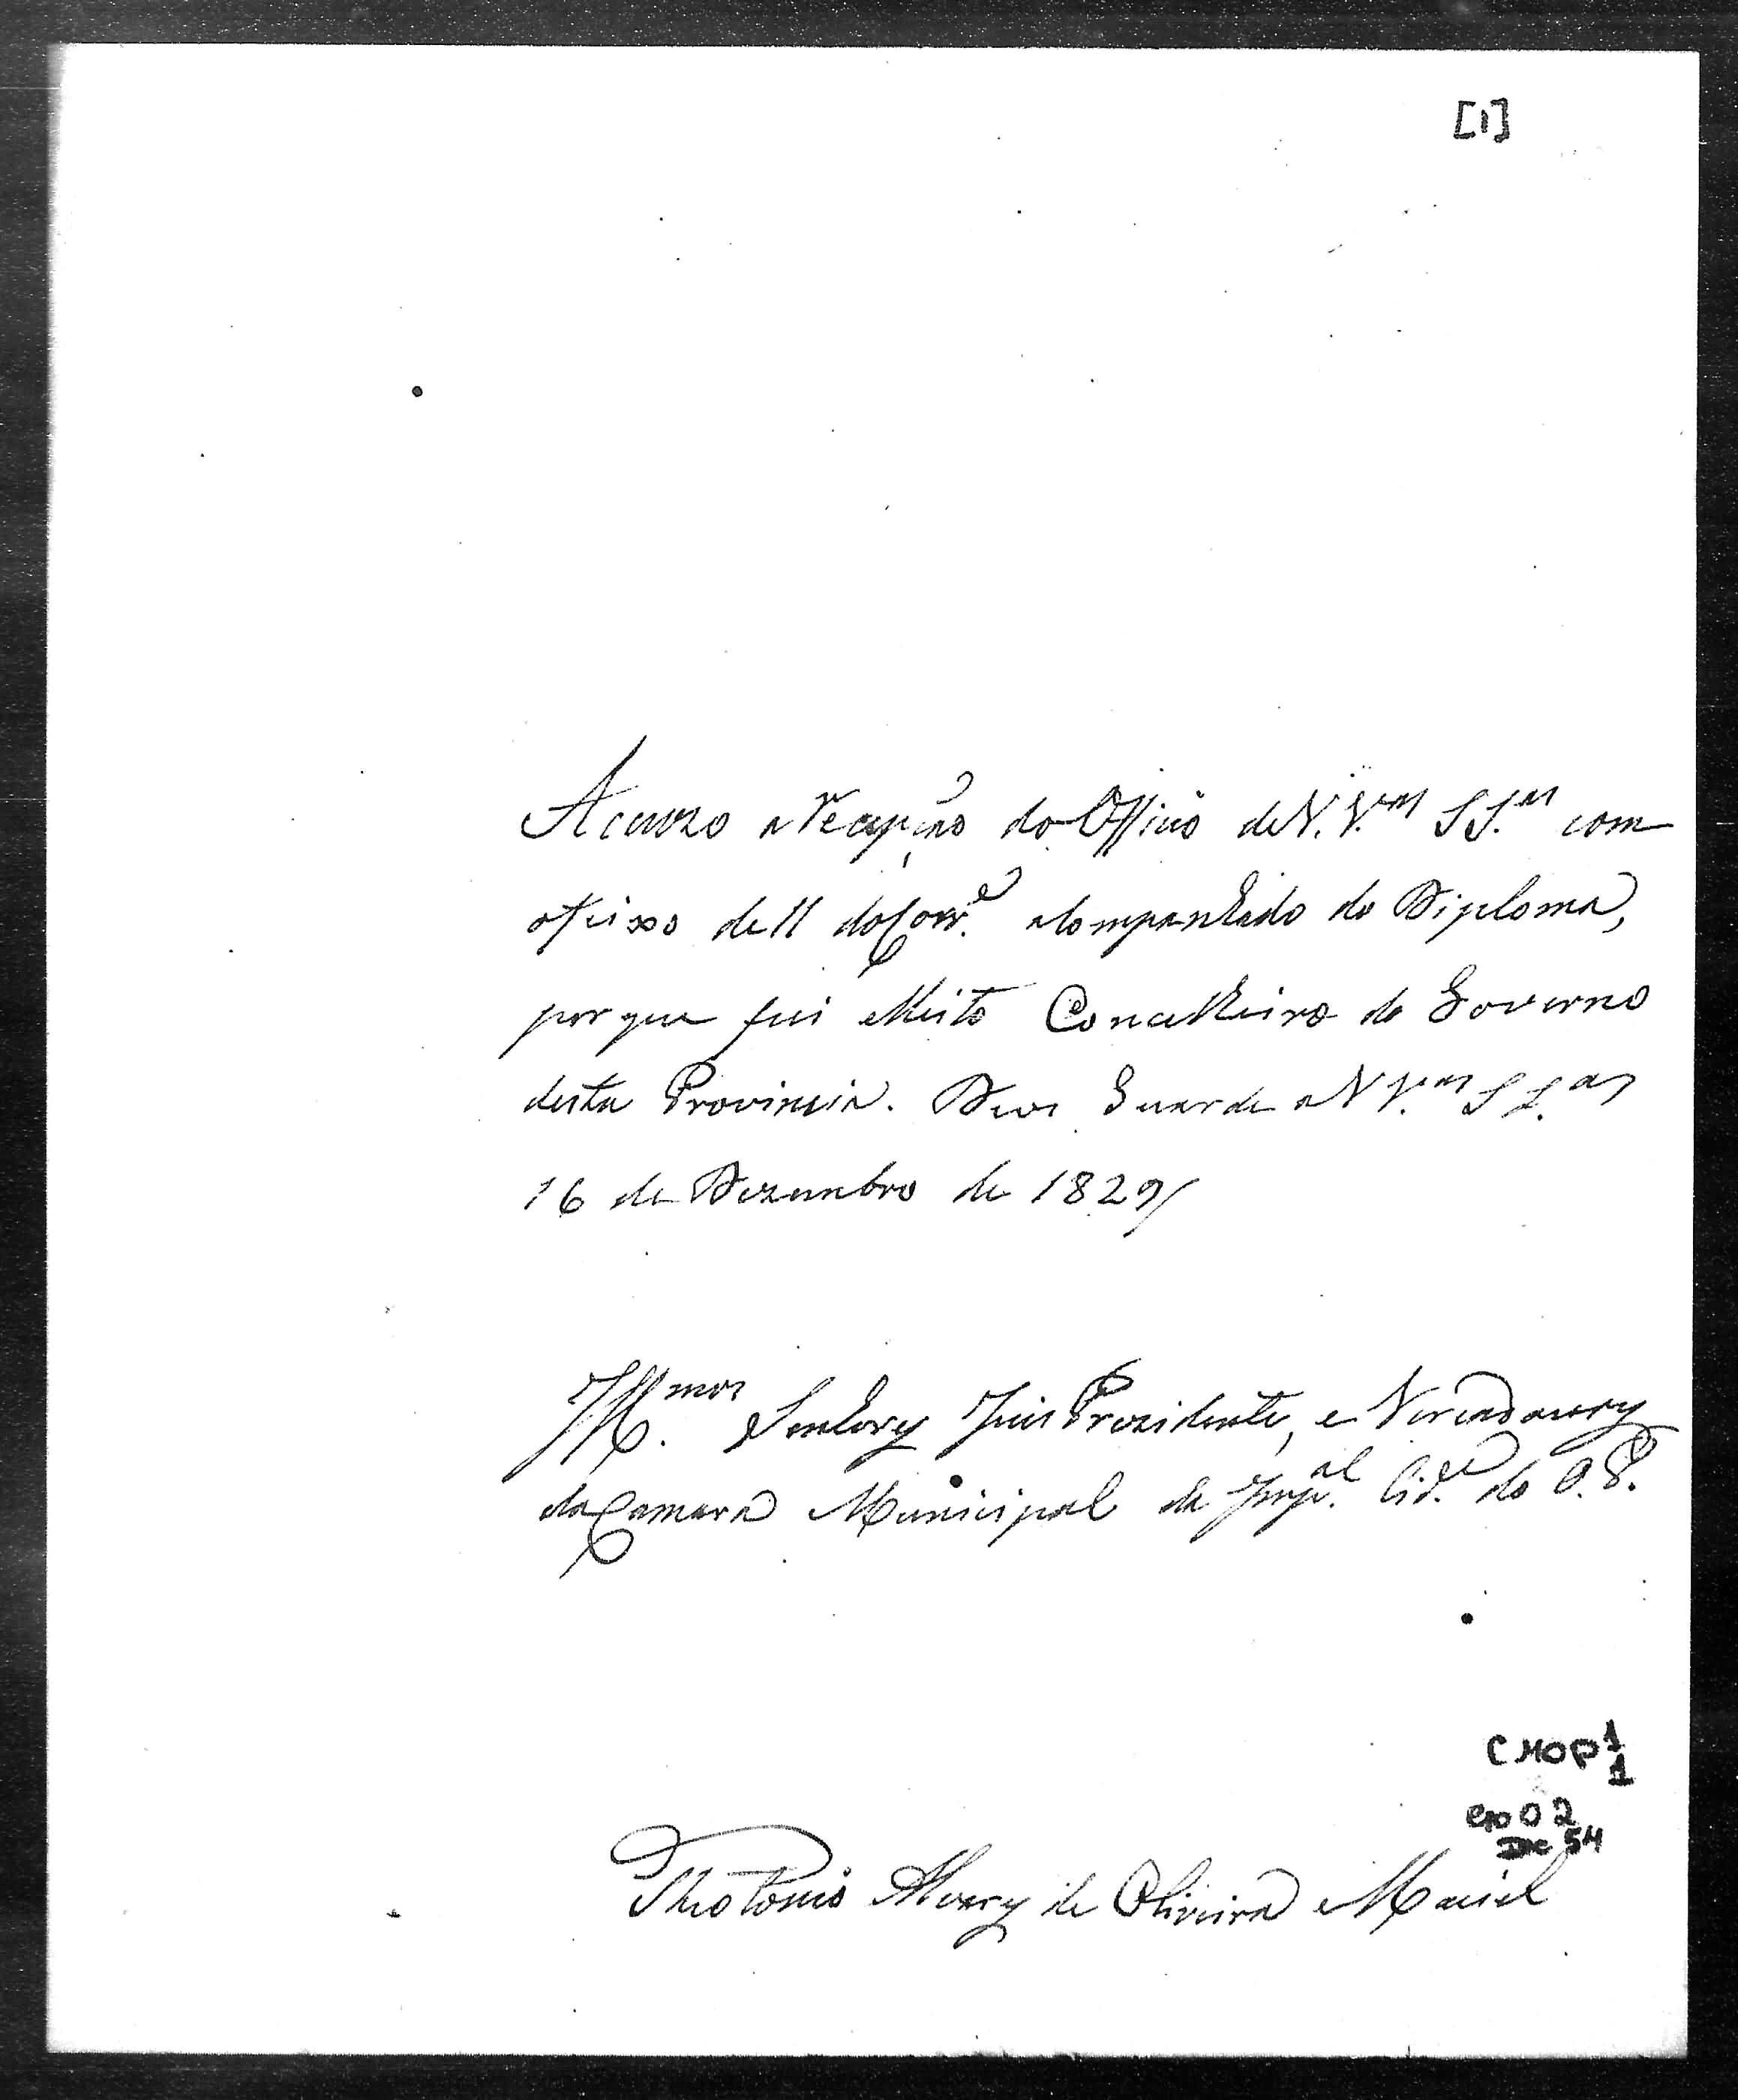 [1]
Acuzo a Recepção do Officio de V. V.as S S.as com
o feixo de 11 do Corr.e acompanhado do Diploma,
por que fui elleito Concelheiro do Governo
desta Provincia. Deos Guarde a V V.as S S.as
16 de Dezembro de 1829/
Ill.mos Senhores Juis Prezidente, e Vereadores
da Camara Municipal da Imp.al Cid.e do O. P.
CMOP 1
1
02
Doc 54
Theotonio Alvares de Oliveira Maciel